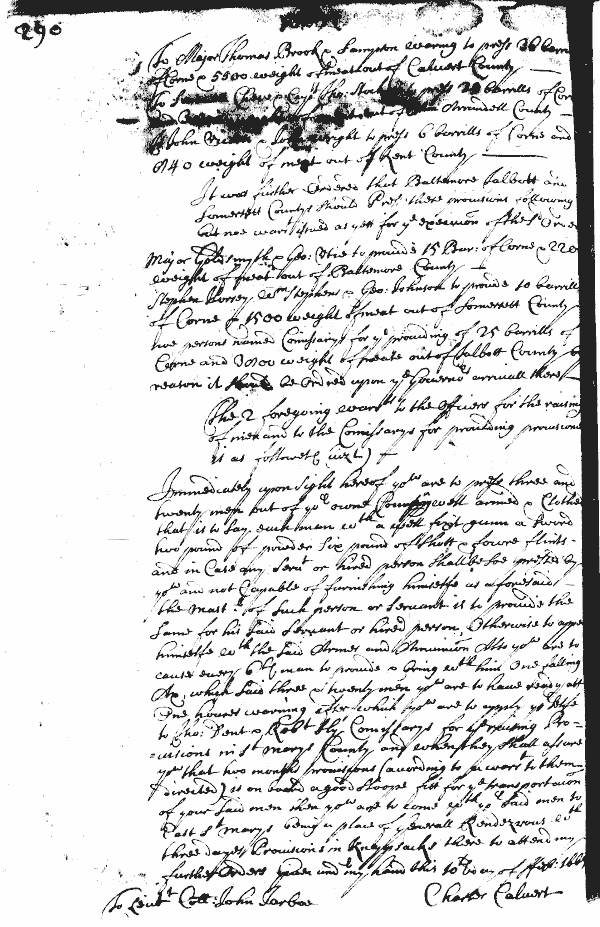 290
To Major Thomas Brook & Sampson Waring to press 38 barr
of Corne & 5500 weight of meat out of Calvert County
to press 28 barrills of Cor
out of Ann Arrundell County
John wright to press 6 barrills of Corne and
840 weight of meat out of Kent County
It was further Ordered that Baltemore Talbott and
Somersett Countys Should Press these provisions following
but noe warrt issued as yett for ye execucon of the sd Order
Major Goldsmyth & Geo: Utie to provide 15 Bar: of Corne & 220
weight of meat out of Baltemore County
Stephen Horsey, Wm Stephens & Geo: Johnson to provide 10 barrill
of Corne & 1500 weight of meat out of Somersett County
noe persons named Comissarys for ye providing of 25 barrills of
Corne and 3800 weight of meate out of Talbott County b
reason it should be ordred upon ye Governors arrivall there
The 2 foregoing warrts to the officers for the raising
of men and to the Comissarys for providing provisions
is as followeth (vizt)
Immediately upon Sight hereof you are to press three and
twenty men out of yor owne County well armed & Clothed
that is to Say each man wth a well fixt gunn a Sword
two pound of powder Six pound of Shott & fowre flints
and in Case any Servt or hired person Shall be soe pressed by
you not Capable of furnishing himselfe as aforesaid
the Mastr of Such person or Servant is to provide the
Same for his Said Servant or hired person, Otherwise to appe
himselfe wth the Said Armes and Amunition Also you are to
cause every 6th man to provide & bring with him One falling
Ax, which Said three & twenty men you are to have ready att
One houres warning after which you are to apply yorselfe
to Tho: Dent & Robt Sly Comissarys for ye raising Pro-
visions in St Marys County and when they Shall assure
you that two months provisions (according to a warrt to them
directed) is on board a good Sloope fitt for ye transportacon
of your Said men then you are to come with yor Said men to
East St Marys being a place of generall Rendezvous wth
three dayes Provisions in Knapsacks there to attend my
further Orders Given undr my hand this 10th day of
To Leiut Coll: John Jarboe Charles Calvert